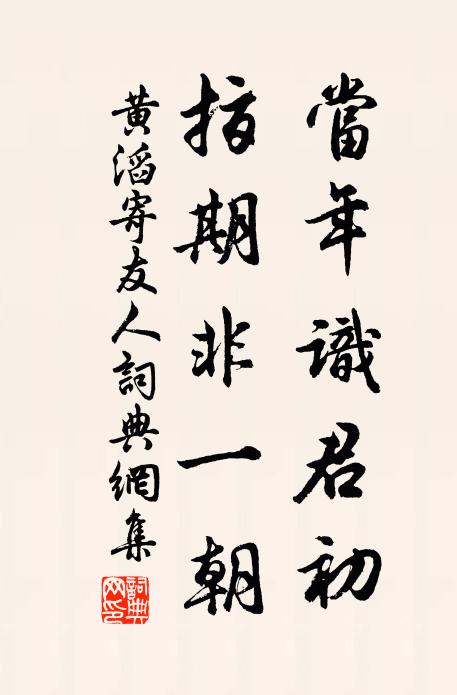 當年識君初
指期非一朝
黄滔寄友人詞典網集
詞典网印